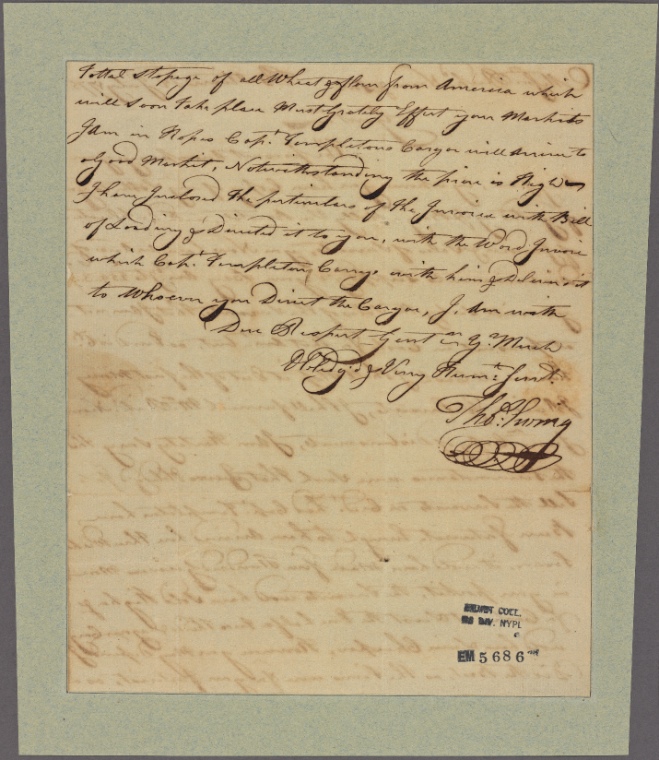 Tottal Stopage of all Wheat & flour from America which
will soon take place Must Grately Effect your Markets
I am in Hopes Capt. Templetons Cargo will arrive to
a Good Market, Notwithstanding the price is High
I have Inclosed the particulars of the Invoice with Bill
of Loading & Directed it to you, with the Word Invoice
which Capt. Templeton Carrys with him & Deliver it
to Whoever you Direct the Cargoe, I Am with
Due Respect Gentn. Yr. Much
Obledg'd & Very Humle. Servt.
Thos. Ewing
EMMET COLL.
MS DIV. NYPL
EM 5686